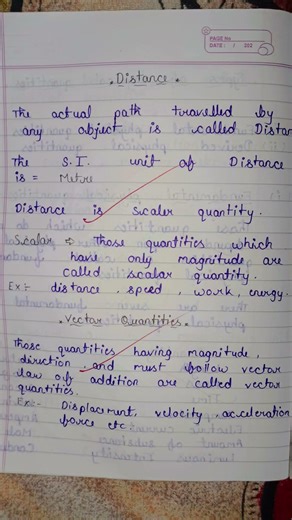 PAGE No
DATE: / 202
. Distance .
The actual path travelled by
any object is called Distan
The S.I. unit of Distance
is = Metre
Distance is sicaler quantity.
Scalar ⇒ Those quantities which
have only magnitude are
called scalar quantity.
Ex:- distance, speed, work, energy.
. Vector Quantities .
Those quantities having magnitude,
direction and must follow vector
law of addition are called vector
quantities.
Ex:- Displacment, velocity, acceleration
force etc